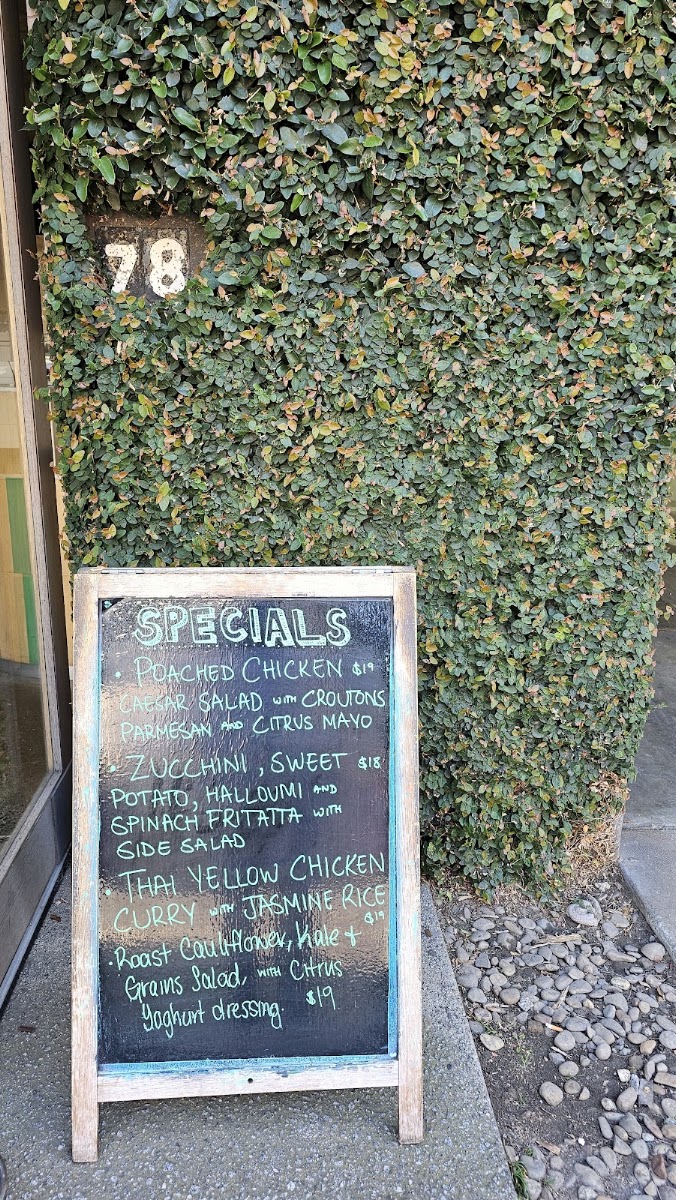 78
SPECIALS
• POACHED CHICKEN $19
CAESAR SALAD WITH CROUTONS
PARMESAN AND CITRUS MAYO
• ZUCCHINI, SWEET $18
POTATO, HALLOUMI AND
SPINACH FRITATTA WITH
SIDE SALAD
• THAI YELLOW CHICKEN
CURRY WITH JASMINE RICE
$19
• Roast Cauliflower, Kale &
Grains Salad, WITH Citrus
Yoghurt dressing. $19